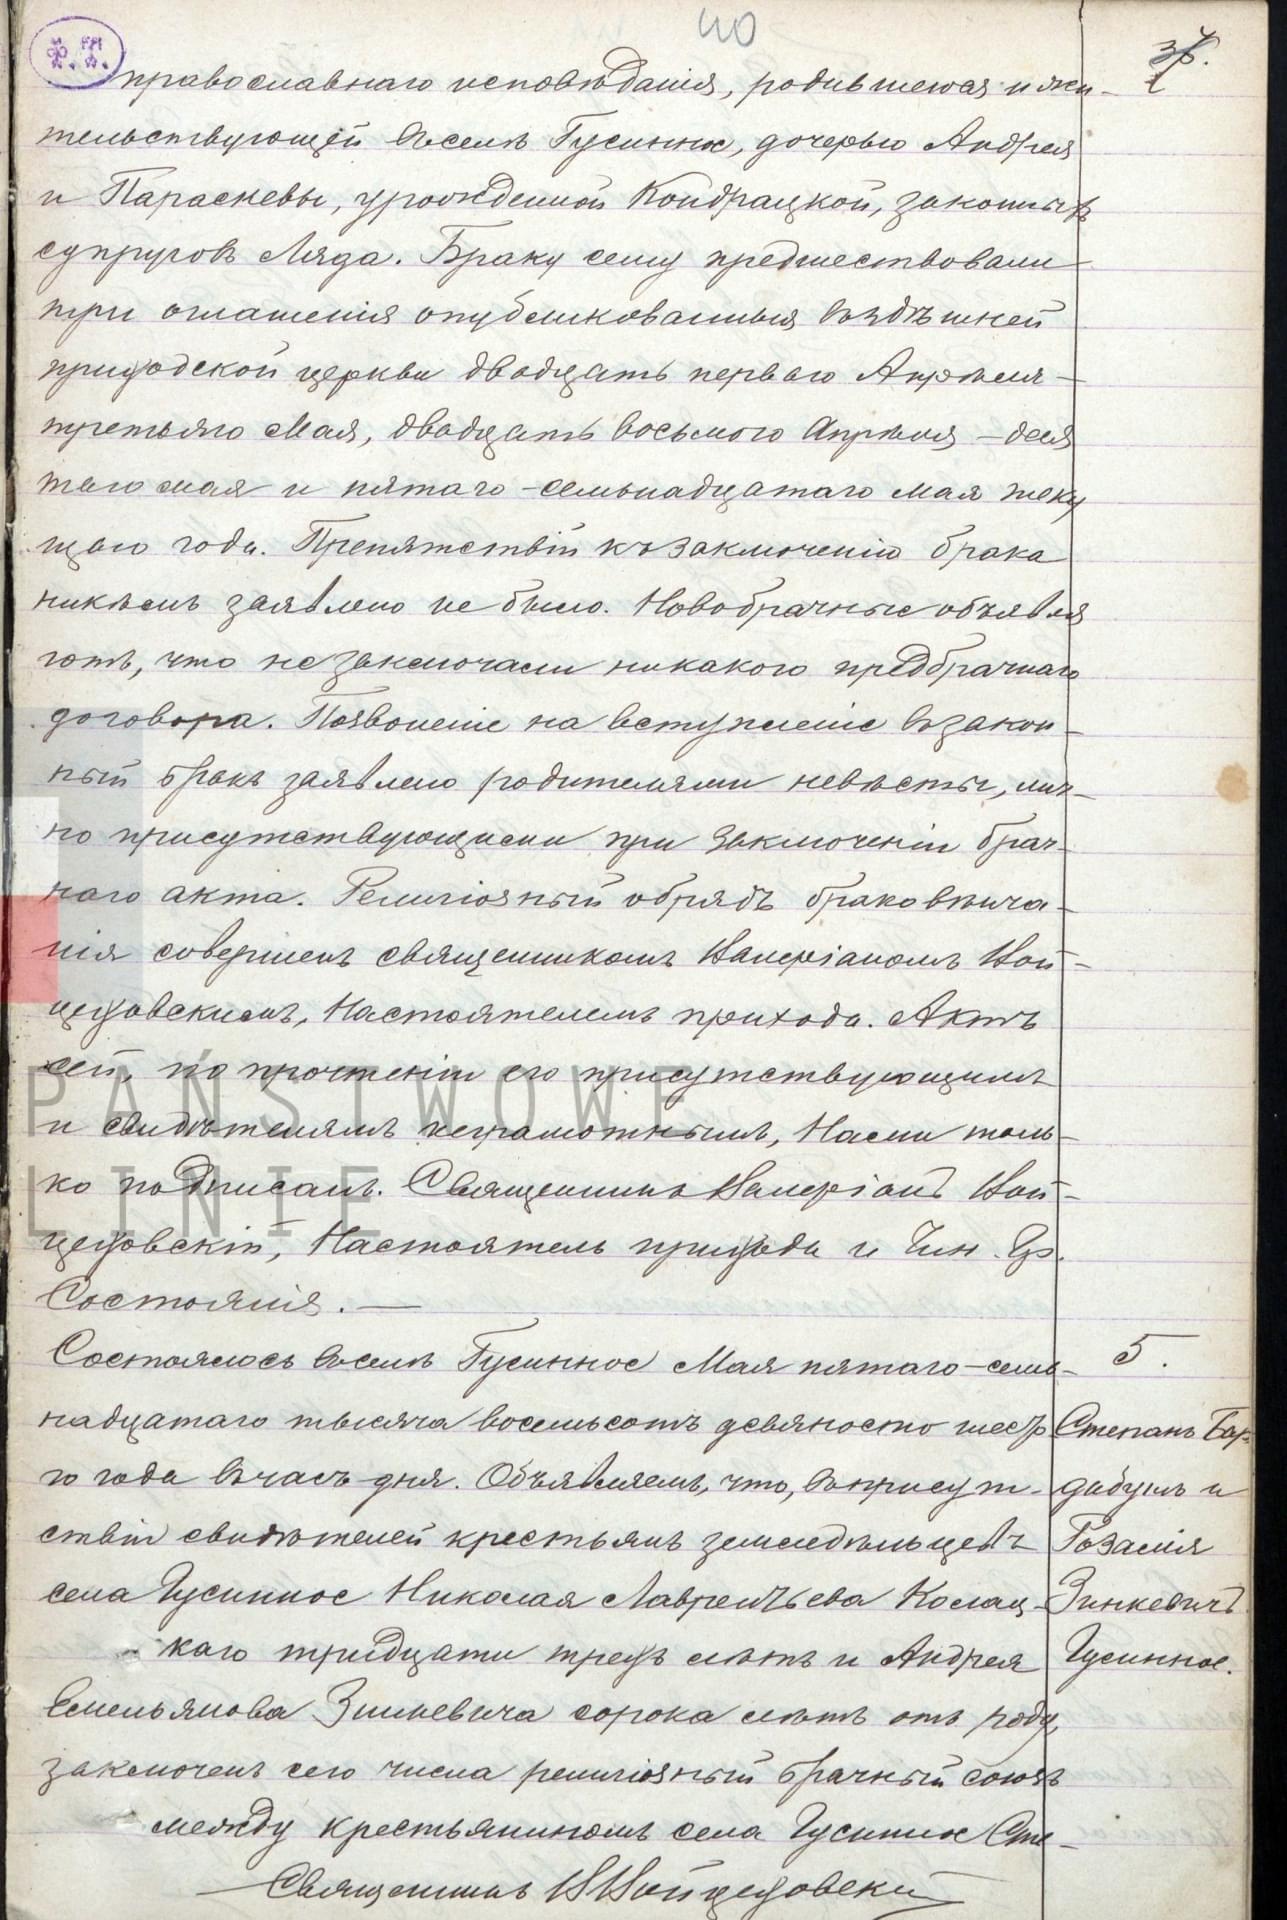 40
37.
православнаго исповѣданія, родившеюся и жи-
тельствующей въ селѣ Гусинное, дочерью Андрея
и Параскевы, урожденной Кондрацкой, законныхъ
супруговъ Ляда. Браку сему предшествовали
три оглашенія опубликованныя въ здѣшней
приходской церкви двадцать перваго Апрѣля —
третьяго Мая, двадцать восьмого Апрѣля — деся
таго мая и пятаго - семьнадцатаго мая теку
щаго года. Препятствій къ заключенію брака
никѣмъ заявлено не было. Новобрачные объявля
ютъ, что не заключали никакого предбрачнаго
договора. Позволеніе на вступленіе въ закон-
ный бракъ заявлено родителями невѣсты, лич-
но присутствующими при заключеніи брач-
наго акта. Религіозный обрядъ браковѣнча-
нія совершенъ священникомъ Валеріаномъ Вой-
цеховскимъ, Настоятелемъ прихода. Актъ
сей, по прочтеніи его присутствующимъ
и свидѣтелямъ неграмотнымъ, Нами толь-
ко подписанъ. Священникъ Валеріанъ Вой-
цеховскій, Настоятель прихода и Чин. Гр.
Состоянія. —
Состоялось въ селѣ Гусинное Мая пятаго - семь-
надцатаго тысяча восемьсотъ девяносто шест
го года въ часъ дня. Объявляемъ, что, въ присут-
ствіи свидѣтелей крестьянъ земледѣльцевъ
села Гусинное Николая Лаврентьева Колац-
каго тридцати трехъ лѣтъ и Андрея
Емельянова Зинкевича сорока лѣтъ отъ роду,
заключенъ сего числа религіозный брачный союзъ
между крестьяниномъ села Гусинное Сте-
Священникъ В Войцеховскій
5.
Степанъ Бар-
дабушъ и
Розалія
Зинкевичъ
Гусинное.
PAŃSTWOWE
LINIE